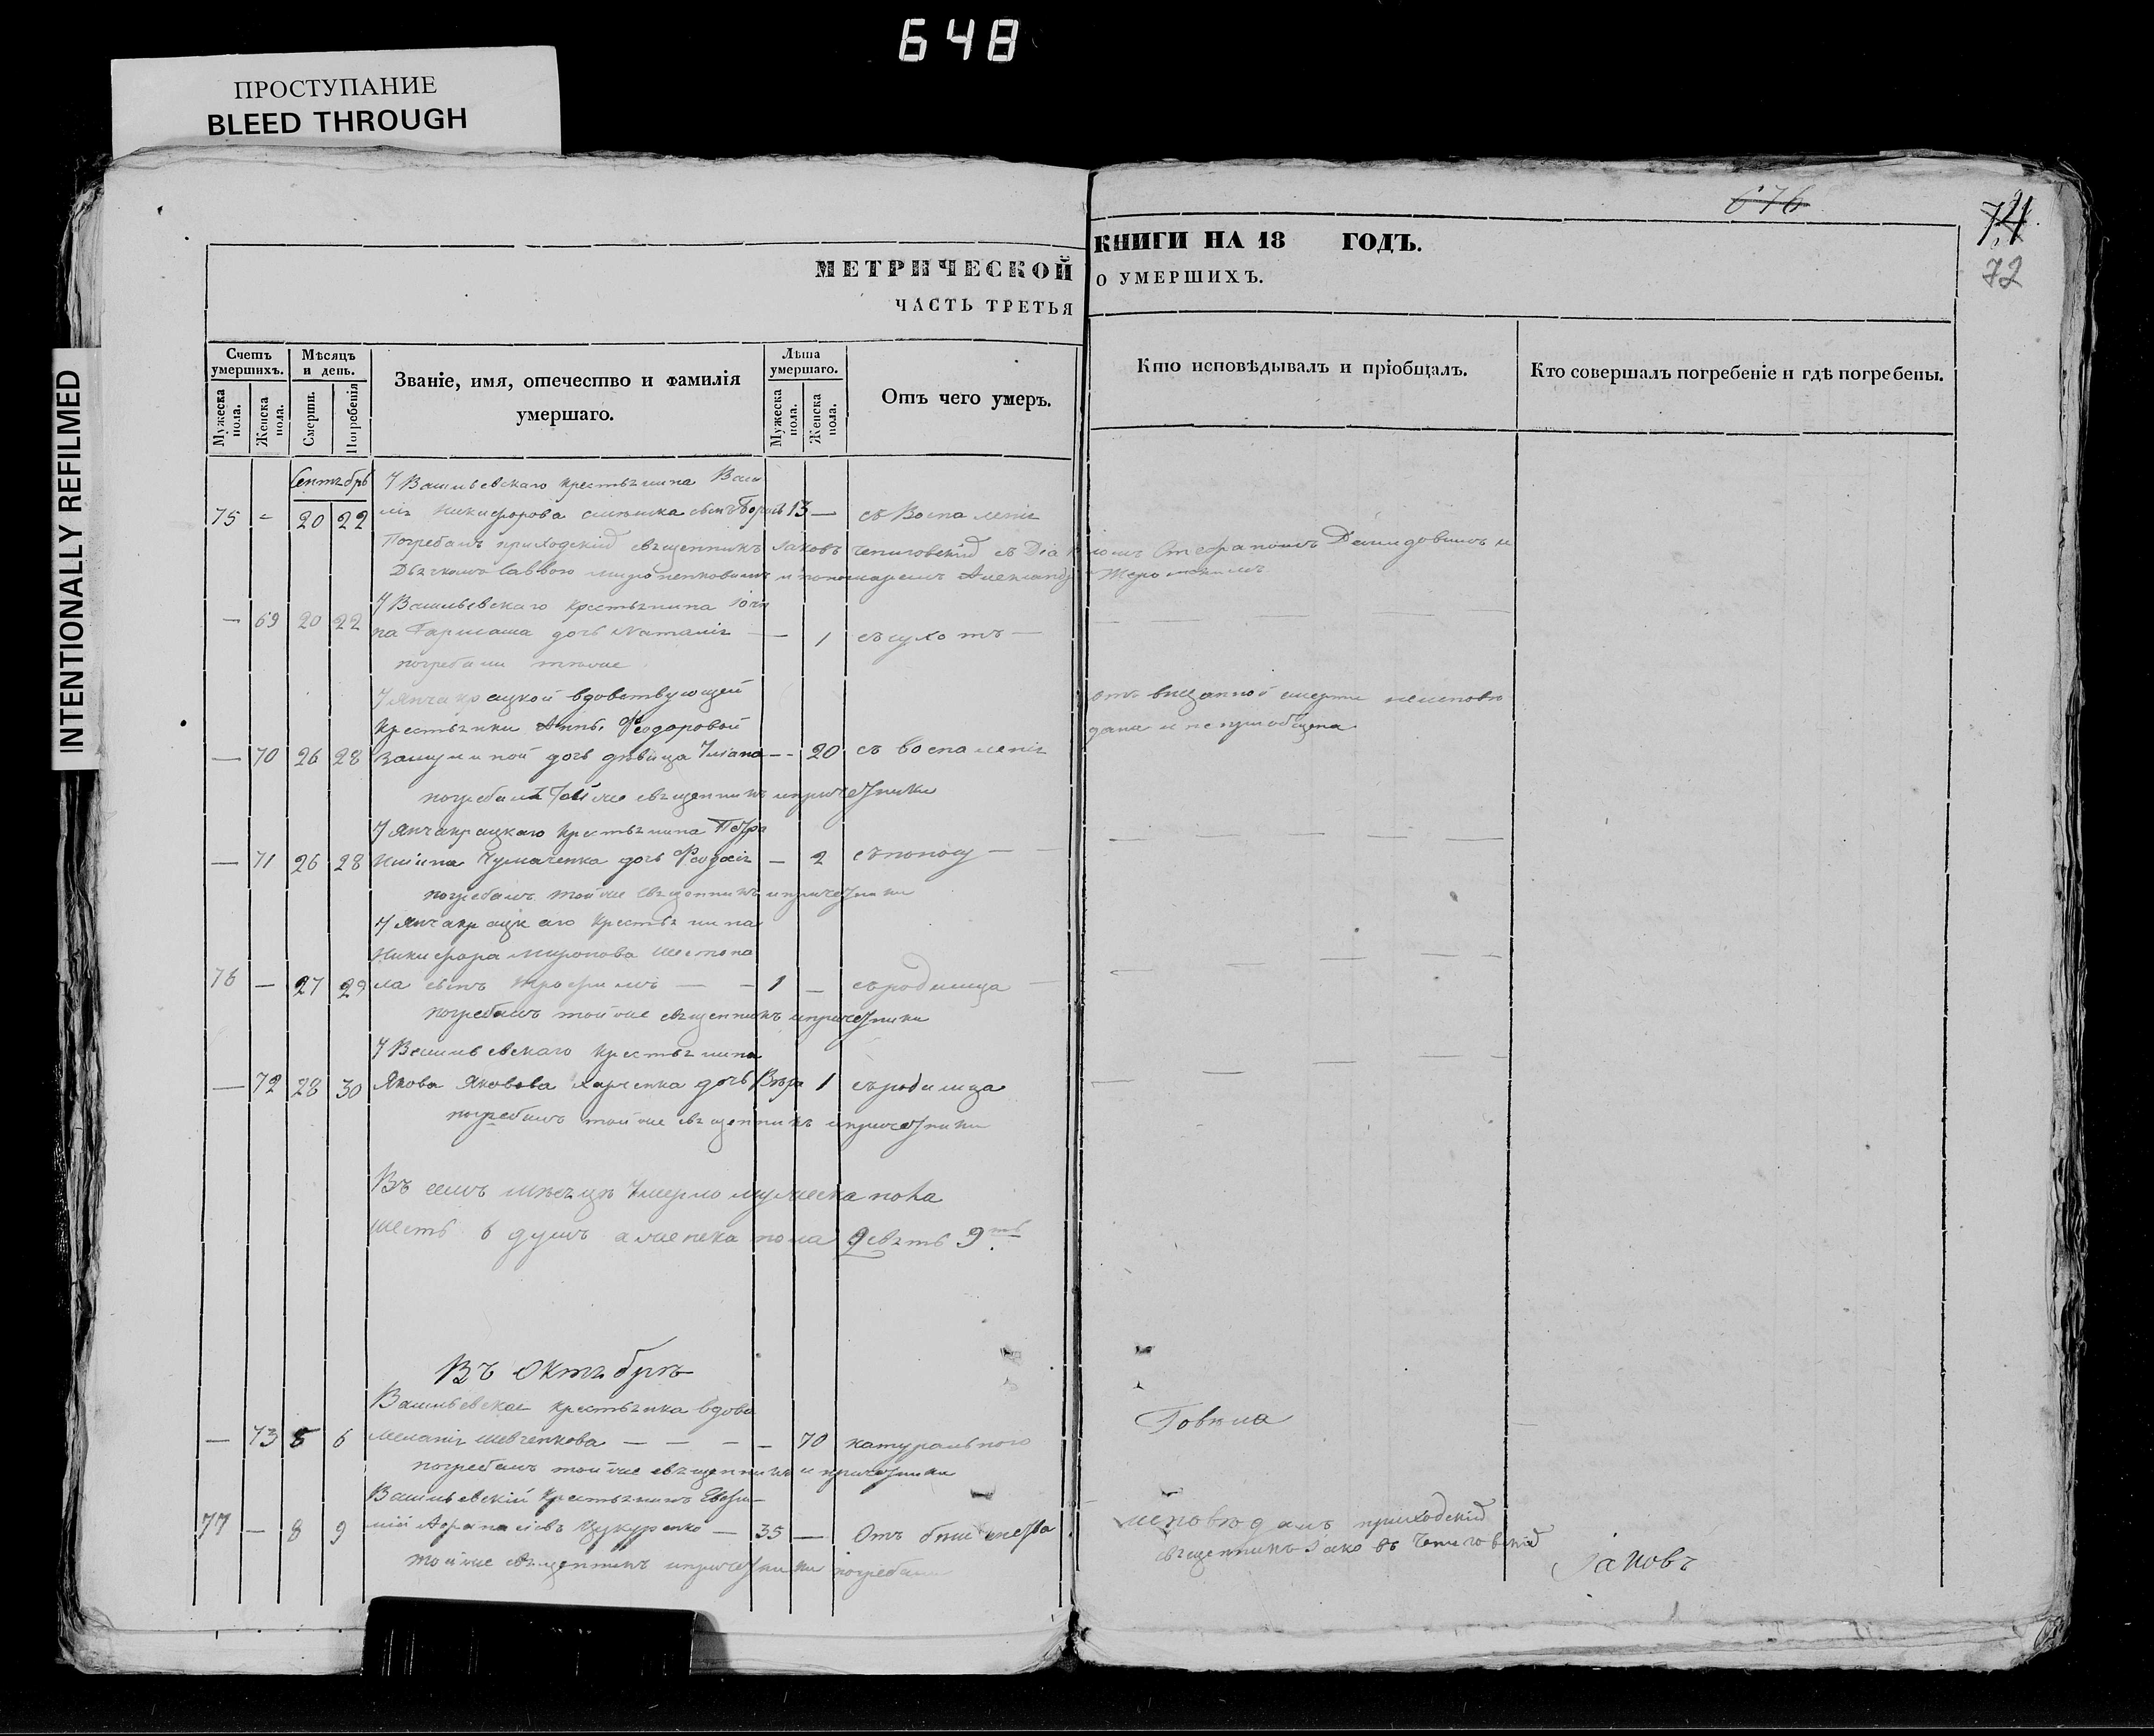 648
ПРОСТУПАНИЕ
BLEED THROUGH
INTENTIONALLY REFILMED
676
74
72
МЕТРИЧЕСКОЙ
КНИГИ НА 18 ГОДЪ.
ЧАСТЬ ТРЕТЬЯ
О УМЕРШИХЪ.
Счетъ умершихъ.
Мужеска пола.
Женска пола.
Мѣсяцъ и день.
Смерти.
Погребенія
Званіе, имя, отечество и фамилія умершаго.
Лѣта умершаго.
Мужеска пола.
Женска пола.
Отъ чего умеръ.
Кто исповѣдывалъ и пріобщалъ.
Кто совершалъ погребеніе и гдѣ погребены.
Сентябрь
У Васильевскаго крестьянина Васи
75 - 20 22 лія Никифорова сынъ Борисъ 13 — съ Воспаленія
Погребалъ приходскій священникъ Іаковъ Чепиговскій съ Діакономъ Стефаномъ Демидовимъ и
Дьячкомъ Саввою и пономаремъ Александр
У Васильевскаго крестьянина Іоан
— 69 20 22 на Гармаша дочь Наталія — — 1 съ сухотъ —
погребали тѣже
У Янчакрацкой вдовствующей
крестьянки Анны Феодоровой
— 70 26 28 дочь дѣвица Уліана — 20 съ воспаленія
отъ внезапной смерти неисповѣ
дана и не приобщена
погребалъ Той же священникъ и причетники
У Янчакрацкаго крестьянина Петра
— 71 26 28 Чумаченка дочь Феодосія — 2 съ поносу —
погребалъ той же священникъ и причетники
У Янчакрацкаго крестьянина
Никифора Миронова Шестопа
76 — 27 29 ла сынъ Трофимъ — — 1 — съ родимца —
погребалъ той же священникъ и причетники
У Васильевскаго крестьянина
— 72 28 30 Якова Яковова Харченка дочь Вѣра 1 съ родимца
погребалъ той же священникъ и причетники
Въ семъ мѣсяцѣ Умерло мужеска пола
шесть 6 душъ а женска пола девять 9ть
Въ Октябрѣ
Васильевская крестьянка вдова
— 73 5 6 Меланія Шевченкова — — — — 70 натурального
Говѣла
погребалъ той же священникъ и причетники
Васильевскій Крестьянинъ Евфи
77 — 8 9 мій Афанасіевъ Цукуренко — 35 — Отъ
исповѣдалъ приходскій
священникъ Іаковъ Чепиговскій
той же священникъ и причетники погребали
Іаковъ